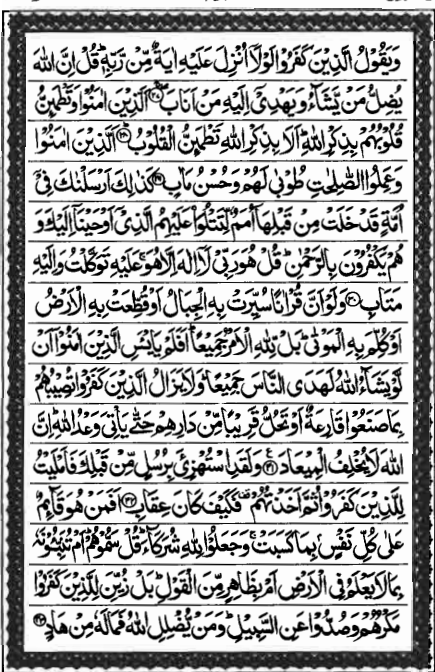 وَيَقُوْلُ الَّذِيْنَ كَفَرُوْا لَوْلَاۤ اُنْزِلَ عَلَيْهِ اٰيَةٌ مِّنْ رَّبِّهٖ ؕ قُلْ اِنَّ اللّٰهَ
يُضِلُّ مَنْ يَّشَآءُ وَيَهْدِيْۤ اِلَيْهِ مَنْ اَنَابَ ۖۚ‏﴿۲۷﴾ اَلَّذِيْنَ اٰمَنُوْا وَتَطْمَئِنُّ
قُلُوْبُهُمْ بِذِكْرِ اللّٰهِ ؕ اَلَا بِذِكْرِ اللّٰهِ تَطْمَئِنُّ الْقُلُوْبُ ؕ‏﴿۲۸﴾ اَلَّذِيْنَ اٰمَنُوْا
وَعَمِلُوا الصّٰلِحٰتِ طُوْبٰى لَهُمْ وَحُسْنُ مَاٰبٍ‏﴿۲۹﴾ كَذٰلِكَ اَرْسَلْنٰكَ فِيْۤ
اُمَّةٍ قَدْ خَلَتْ مِنْ قَبْلِهَاۤ اُمَمٌ لِّتَتْلُوَاۡ عَلَيْهِمُ الَّذِيْۤ اَوْحَيْنَاۤ اِلَيْكَ وَ
هُمْ يَكْفُرُوْنَ بِالرَّحْمٰنِ ؕ قُلْ هُوَ رَبِّيْ لَاۤ اِلٰهَ اِلَّا هُوَ ۚ عَلَيْهِ تَوَكَّلْتُ وَاِلَيْهِ
مَتَابِ‏﴿۳۰﴾ وَلَوْ اَنَّ قُرْاٰنًا سُيِّرَتْ بِهِ الْجِبَالُ اَوْ قُطِّعَتْ بِهِ الْاَرْضُ
اَوْ كُلِّمَ بِهِ الْمَوْتٰى ؕ بَلْ لِّلّٰهِ الْاَمْرُ جَمِيْعًا ؕ اَفَلَمْ يَايْـَٔسِ الَّذِيْنَ اٰمَنُوْۤا اَنْ
لَّوْ يَشَآءُ اللّٰهُ لَهَدَى النَّاسَ جَمِيْعًا ؕ وَلَا يَزَالُ الَّذِيْنَ كَفَرُوْا تُصِيْبُهُمْ
بِمَا صَنَعُوْا قَارِعَةٌ اَوْ تَحُلُّ قَرِيْبًا مِّنْ دَارِهِمْ حَتّٰى يَاْتِيَ وَعْدُ اللّٰهِ ؕ اِنَّ
اللّٰهَ لَا يُخْلِفُ الْمِيْعَادَ ؏‏﴿۳۱﴾ وَلَقَدِ اسْتُهْزِئَ بِرُسُلٍ مِّنْ قَبْلِكَ فَاَمْلَيْتُ
لِلَّذِيْنَ كَفَرُوْا ثُمَّ اَخَذْتُهُمْ فَكَيْفَ كَانَ عِقَابِ‏﴿۳۲﴾ اَفَمَنْ هُوَ قَآئِمٌ
عَلٰى كُلِّ نَفْسٍۭ بِمَا كَسَبَتْ ۚ وَجَعَلُوْا لِلّٰهِ شُرَكَآءَ ؕ قُلْ سَمُّوْهُمْ ؕ اَمْ تُنَبِّـُٔوْنَهٗ
بِمَا لَا يَعْلَمُ فِي الْاَرْضِ اَمْ بِظَاهِرٍ مِّنَ الْقَوْلِ ؕ بَلْ زُيِّنَ لِلَّذِيْنَ كَفَرُوْا
مَكْرُهُمْ وَصُدُّوْا عَنِ السَّبِيْلِ ؕ وَمَنْ يُّضْلِلِ اللّٰهُ فَمَا لَهٗ مِنْ هَادٍ‏﴿۳۳﴾